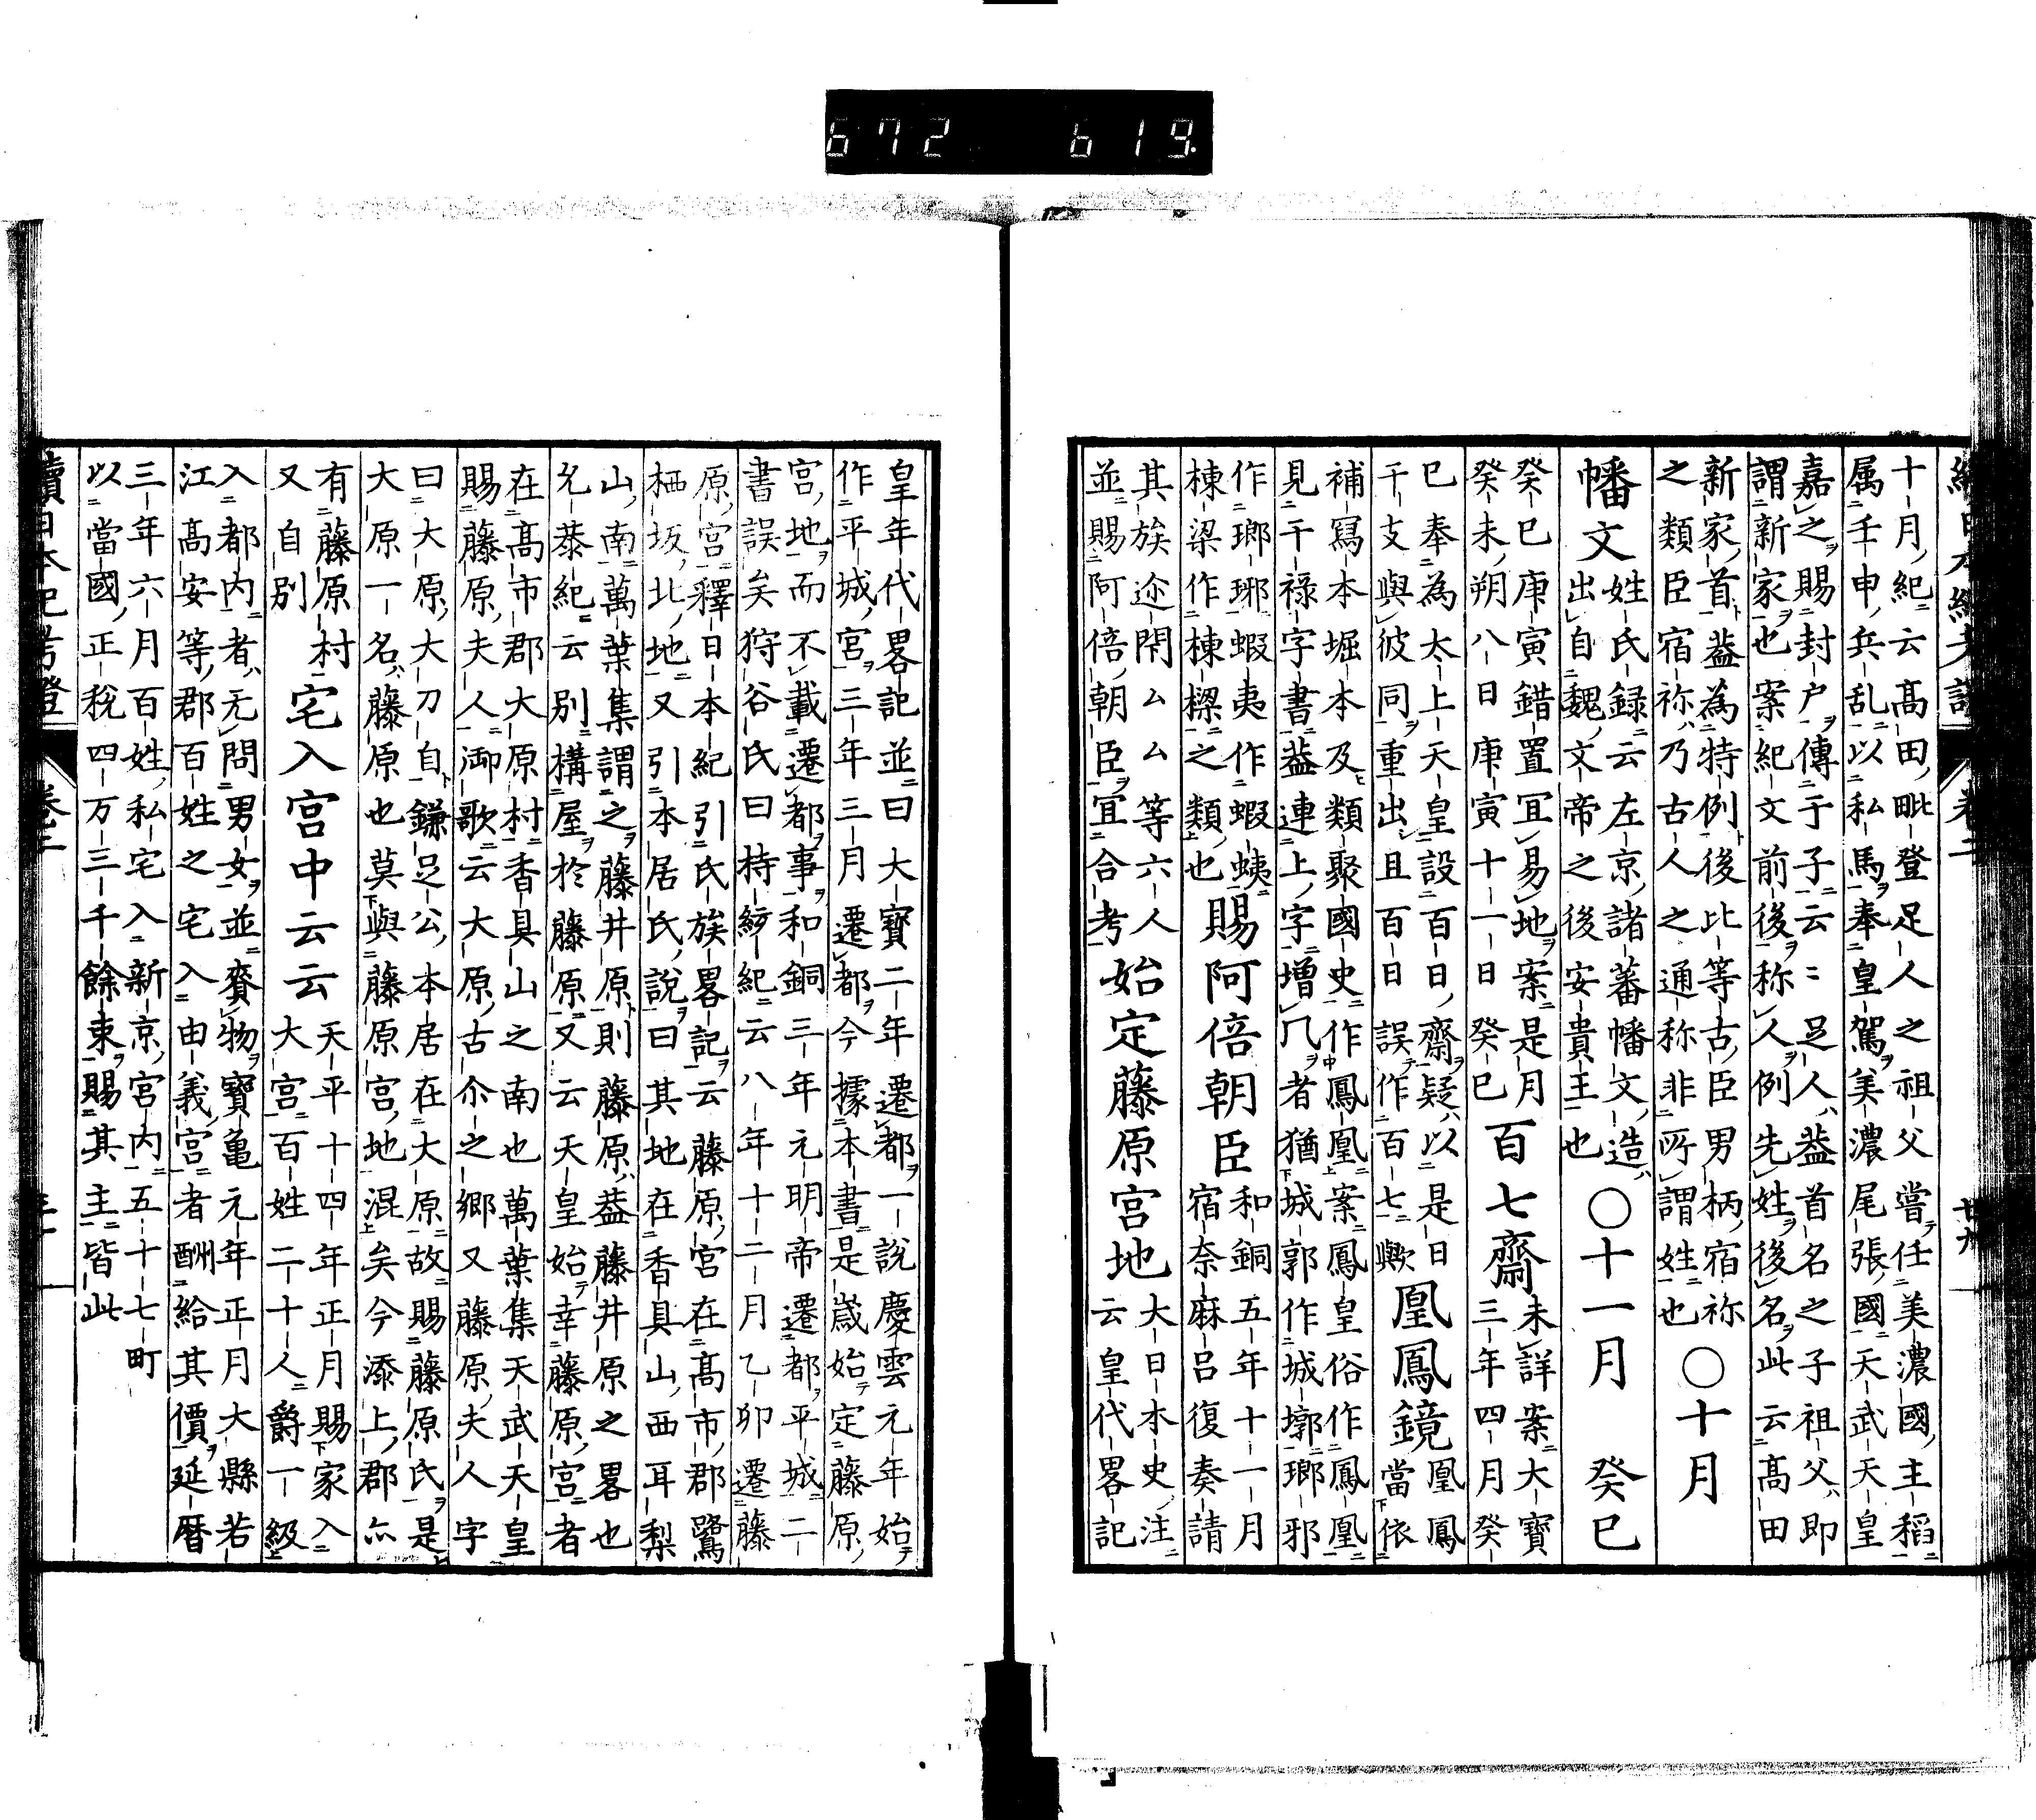 672 619.
十月紀云髙田毗登足人之祖父嘗任美濃國主稻
属壬申兵乱以私馬奉皇駕美濃尾張國天武天皇
嘉之賜封户傳于子云々足人盖首名之子祖父即
謂新家也案紀文前後称人例先姓後名此云髙田
新家首盖為特例後比等古臣男柄宿祢
之類臣宿祢乃古人之通称非所謂姓也
○十月
幡文
姓氏録云左京諸蕃幡文造
出自魏文帝之後安貴王也
○十一月　癸巳
癸巳庚寅錯置冝易地案是月
癸未朔八日庚寅十一日癸巳
百七齋
未詳案大寶
三年四月癸
巳奉為太上天皇設百日齋疑以是日
干支與彼同重出且百日誤作百七歟
凰鳳鏡
凰鳳
當依
補寫本堀本及類聚國史作鳳凰案鳳皇俗作鳳凰
見干禄字書盖連上字增几者猶城郭作城墎瑯邪
作瑯琊蝦夷作蝦蛦
棟梁作棟樑之類也
賜阿倍朝臣
和銅五年十一月
宿奈麻呂復奏請
其族迩閇厶厶等六人
並賜阿倍朝臣冝合考
始定藤原宮地
大日本史注
云皇代畧記
皇年代畧記並曰大寶二年遷都一說慶雲元年始
作平城宮三年三月遷都今據本書是歳始定藤原
宮地而不載遷都事和銅三年元明帝遷都平城二
書誤矣狩谷氏曰持綂紀云八年十二月乙卯遷藤
原宮釋日本紀引氏族畧記云藤原宮在髙市郡鷺
栖坂北地又引本居氏說曰其地在香具山西耳梨
山南萬葉集謂之藤井原則藤原盖藤井原之畧也
允恭紀云別構屋於藤原又云天皇始幸藤原宮者
在髙市郡大原村香具山之南也萬葉集天武天皇
賜藤原夫人御歌云大原古尒之郷又藤原夫人字
曰大原大刀自鎌足公本居在大原故賜藤原氏是
大原一名藤原也莫與藤原宮地混矣今添上郡亦
有藤原村
又自別
宅入宮中云云
天平十四年正月賜家入
大宮百姓二十人爵一級
入都内者无問男女並賚物寶亀元年正月大縣若
江髙安等郡百姓之宅入由義宮者酬給其價延暦
三年六月百姓私宅入新京宮内五十七町
以當國正税四万三千餘束賜其主皆此